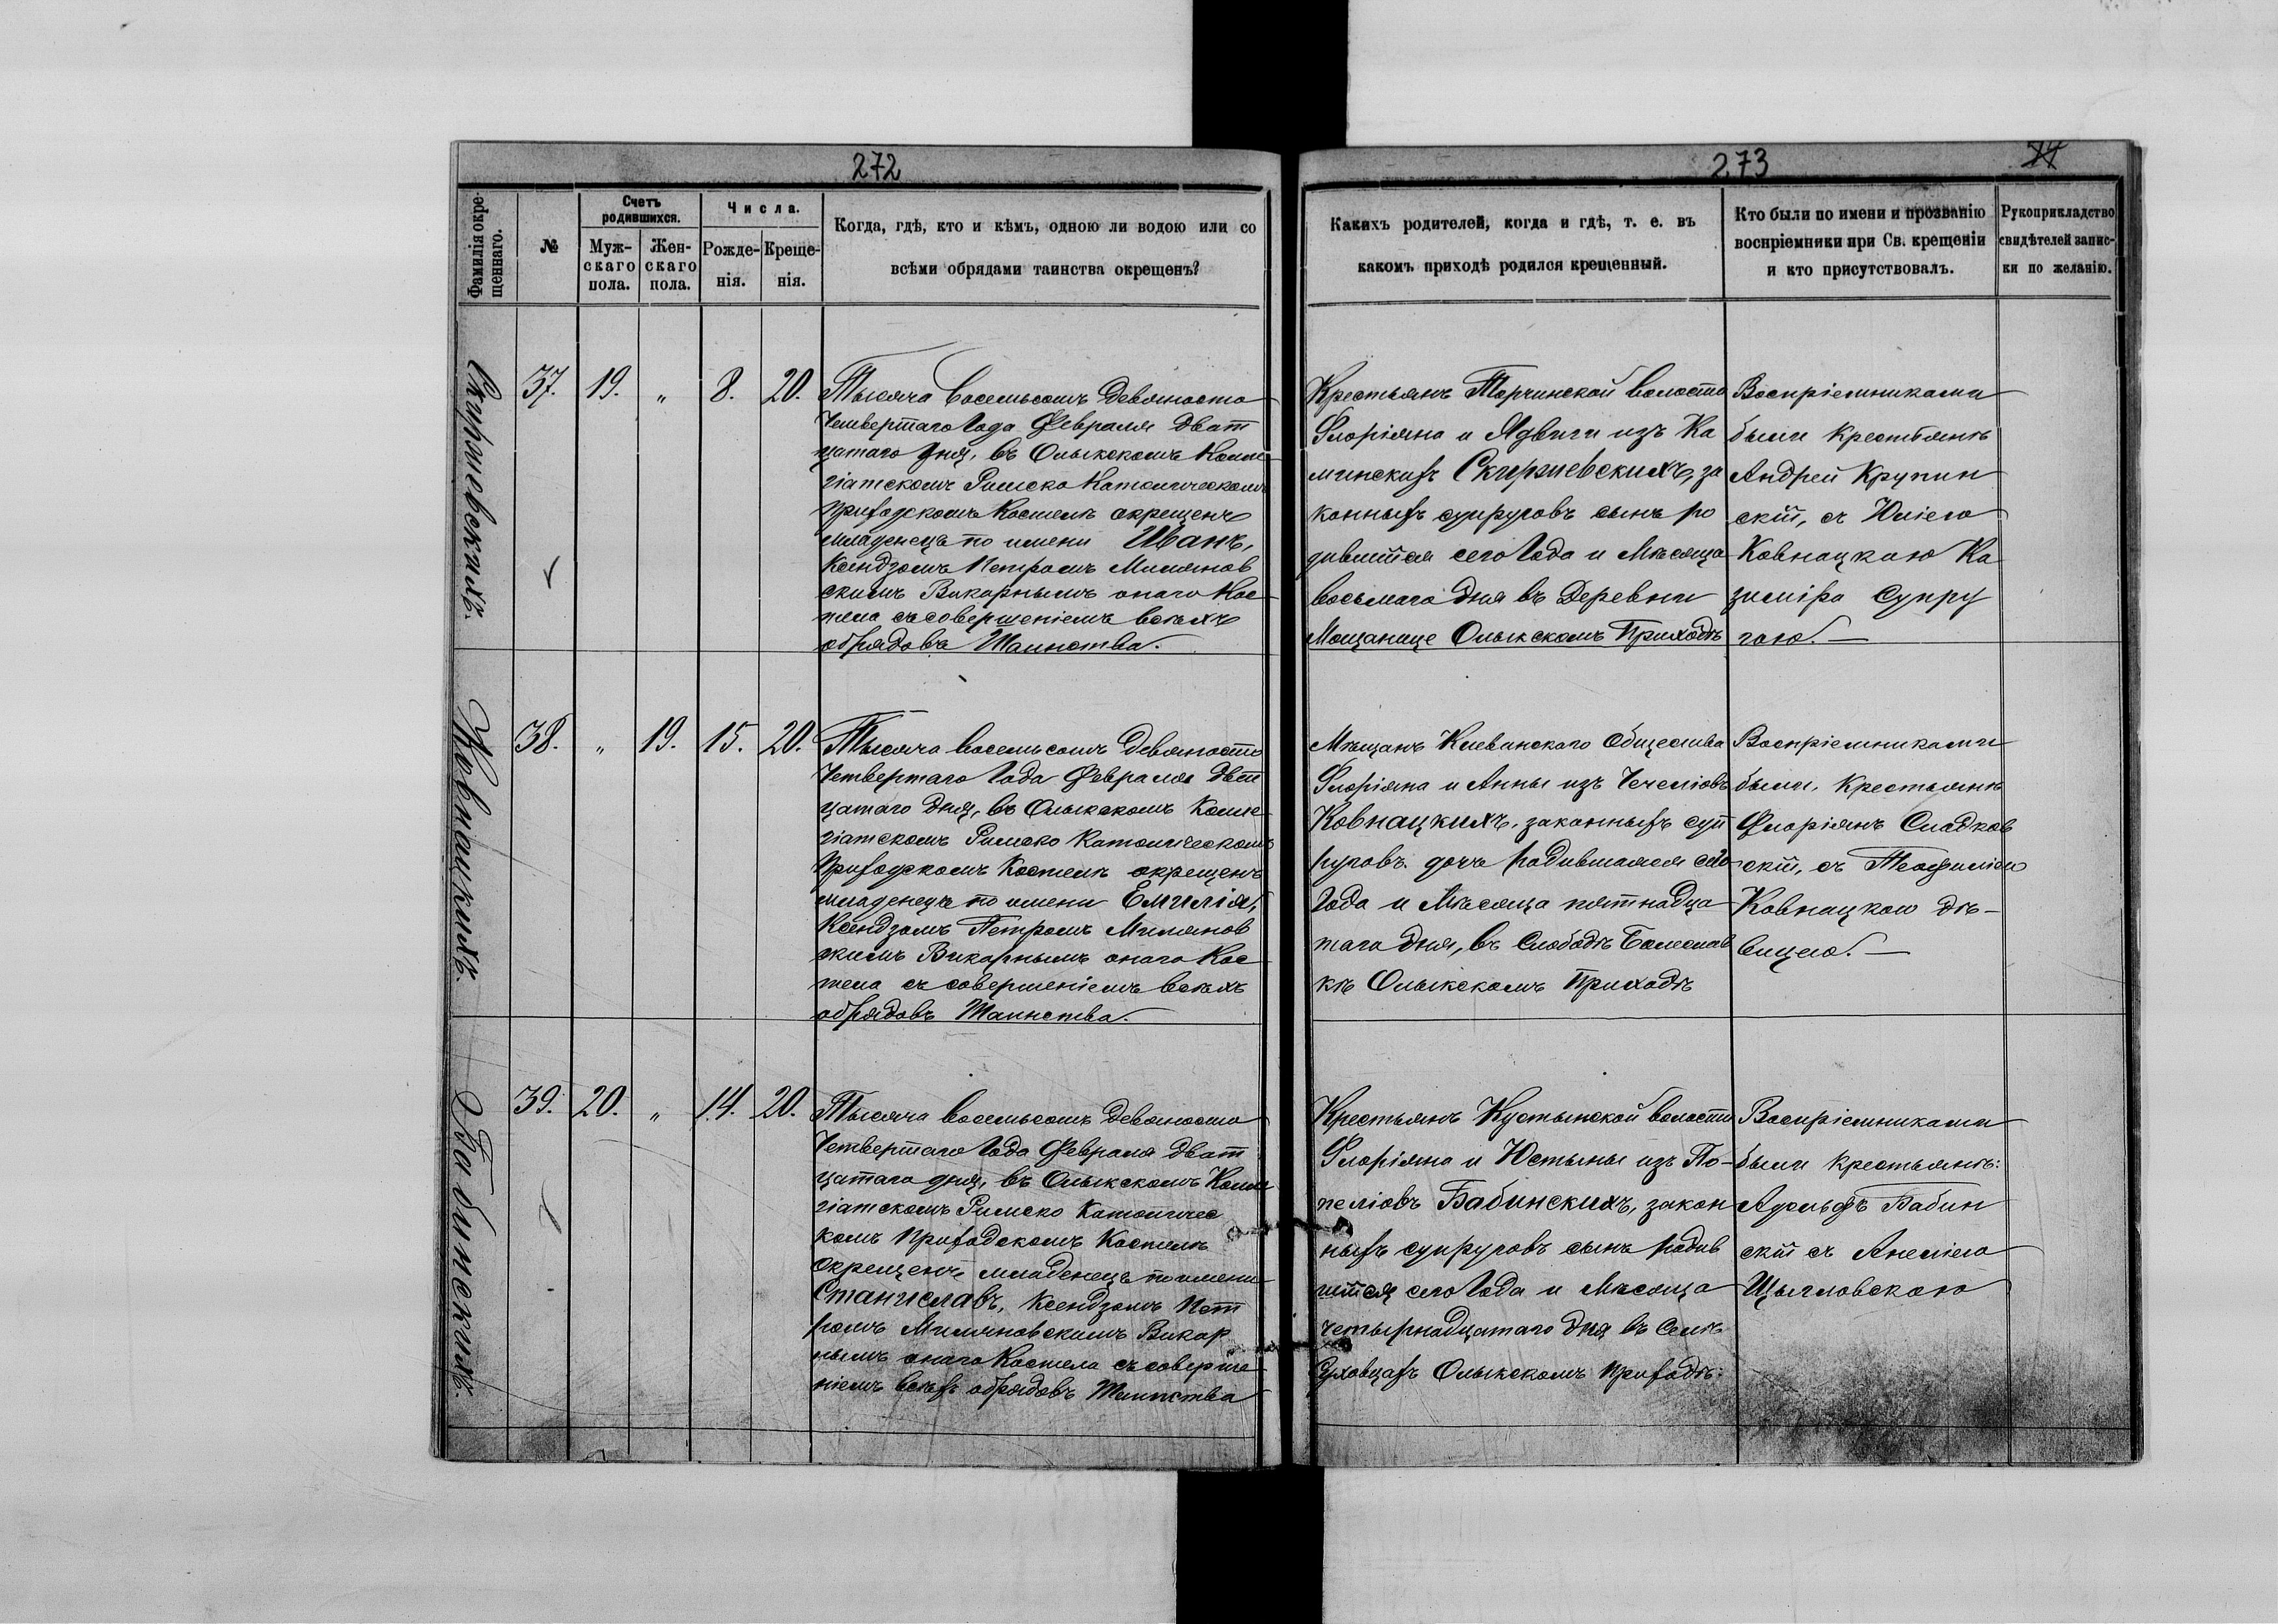 272
Фамилія окре-
щеннаго.
№
Счетъ
родившихся.
Муж-
скаго
пола.
Жен-
скаго
пола.
Числа.
Рожде-
нія.
Креще-
нія.
Когда, гдѣ, кто и кѣмъ, одною ли водою или со
всѣми обрядами таинства окрещенъ?
Скиржевскихъ.
37.
19.
„
8.
20.
Тысяча восемьсотъ девяносто
Четвертаго Года Февраля дват
цатаго дня, въ Олыкскомъ Колле
гіатскомъ Римско Католическомъ
Приходскомъ Костелѣ окрещенъ
младенецъ по имени Иванъ,
Ксендзомъ Петромъ Милянов
скимъ Викарнымъ онаго Кос
тела съ совершеніемъ всѣхъ
обрядовъ Таинства.
Ковнацкихъ.
38.
„
19.
15.
20.
Тысяча восемьсотъ девяносто
Четвертаго Года Февраля дват
цатаго дня, въ Олыкскомъ Колле
гіатскомъ Римско Католическомъ
Приходскомъ Костелѣ окрещенъ
младенецъ по имени Емилія,
Ксендзомъ Петромъ Милянов
скимъ Викарнымъ онаго Кос
тела съ совершеніемъ всѣхъ
обрядовъ Таинства.
Бабинскихъ.
39.
20.
„
14.
20.
Тысяча восемьсотъ девяносто
Четвертаго Года Февраля дват
цатаго дня, въ Олыкскомъ Колле
гіатскомъ Римско Католичес
комъ Приходскомъ Костелѣ
окрещенъ младенецъ по имени
Станиславъ, Ксендзомъ Пет
ромъ Миляновскимъ Викар
нымъ онаго Костела съ соверше
ніемъ всѣхъ обрядовъ Таинства
273
Какихъ родителей, когда и гдѣ, т. е. въ
какомъ приходѣ родился крещенный.
Кто были по имени и прозванію
воспріемники при Св. крещеніи
и кто присутствовалъ.
Рукоприкладство
свидѣтелей запис-
ки по желанію.
Крестьянъ Торчинской волости
Флоріяна и Ядвиги изъ Ка
минскихъ Скиржевскихъ, за
конныхъ супруговъ сынъ ро
дившійся сего Года и Мѣсяца
восьмаго дня въ Деревни
Мощанице Олыкскомъ Приходѣ
Воспріемниками
были крестьянѣ
Андрей Крупин
скій, съ Юліею
Ковнацкою Ка
зиміра Супру
гою. —
Мѣщанъ Клеванскаго Общества
Флоріяна и Анны изъ Чечеліовъ
Ковнацкихъ, законныхъ суп
руговъ дочь родившаяся сего
Года и Мѣсяца пятнадца
таго дня, въ Слободѣ Болеслав
кѣ Олыкскомъ Приходѣ
Воспріемниками
были, Крестьянѣ
Флоріянъ Сладков
скій, съ Теофиліею
Ковнацкою дѣ-
вицею. —
Крестьянъ Кустынской волости
Флоріяна и Юстыны изъ По-
пеліовъ Бабинскихъ, закон
ныхъ супруговъ сынъ родив
шійся сего Года и Мѣсяца
четырнадцатаго дня въ Селѣ
Суховцахъ Олыкскомъ приходѣ.
Воспріемниками
были крестьянѣ:
Адольфъ Бабин
скій съ Анеліею
Щыгловскою